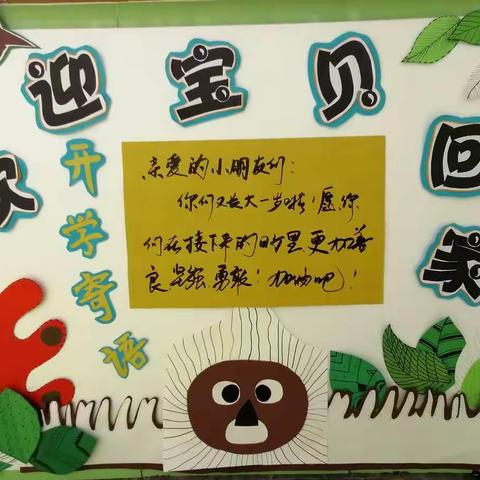 欢迎宝贝回家
开学寄语
亲爱的小朋友们：
你们又长大一岁啦！愿你
们在接下来的日子里更加善
良坚强勇敢！加油吧！